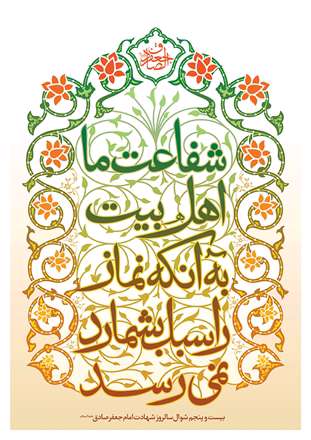 جعفر بن
الصادق
شفاعت ما
اهل بیت
به آنکه نماز
را سبک بشمارد
نمی رسد
بیست و پنجم شوال سالروز شهادت امام جعفر صادق